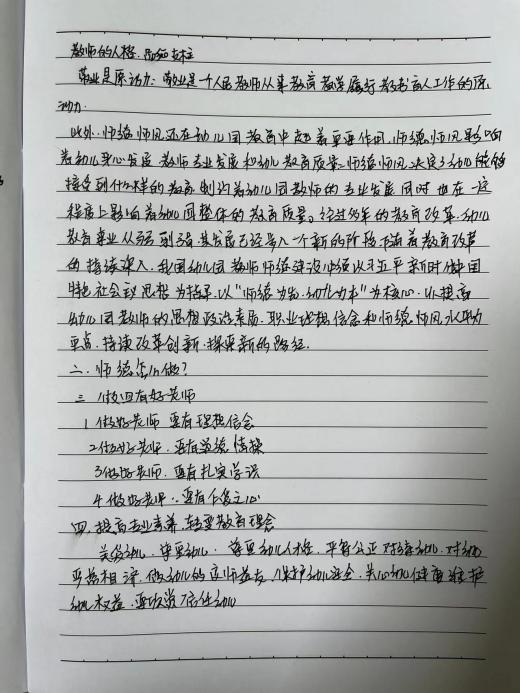 教师的人格、思想支柱
敬业是原动力：敬业是一个人民教师从事教育教学履行教书育人工作的原
动力.
此外、师德师风还在幼儿园教育中起着重要作用，师德、师风影响
着幼儿身心发展 教师专业发展和幼儿教育质量、师德师风、决定了幼儿能够
接受到什么样的教育 制约着幼儿园教师的专业发展 同时 也在一定
程度上影响着幼儿园整体的教育质量。经过多年的教育改革、幼儿
教育事业从弱到强 其发展已经步入一个新的阶段、随着教育改革
的持续深入、我国幼儿园教师师德建设必须以习近平新时代中国
特色社会主义思想为指导、以“师德为先、幼儿为本”为核心、以提高
幼儿园教师的思想政治素质、职业理想信念和师德师风、水平为
重点、持续改革创新、探索新的路径.
二. 师德怎么做?
三 做四有好老师
1 做好老师 要有理想信念
2做好老师、要有道德情操
3做好老师、要有扎实学识
4 做好老师、要有仁爱之心
四、提高专业素养、转变教育理念
关爱幼儿、尊重幼儿、尊重幼儿人格、平等公正对待幼儿、对幼儿
严慈相济、做幼儿的良师益友、保护幼儿安全、关心幼儿健康 维护
幼儿权益、要欣赏信任幼儿